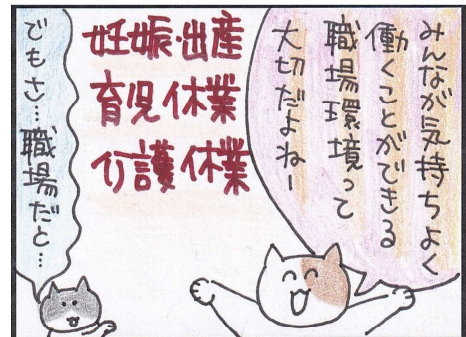 みんなが気持ちよく
働くことができる
職場環境って
大切だよねー
妊娠・出産
育児休業
介護休業
でもさ…職場だと…